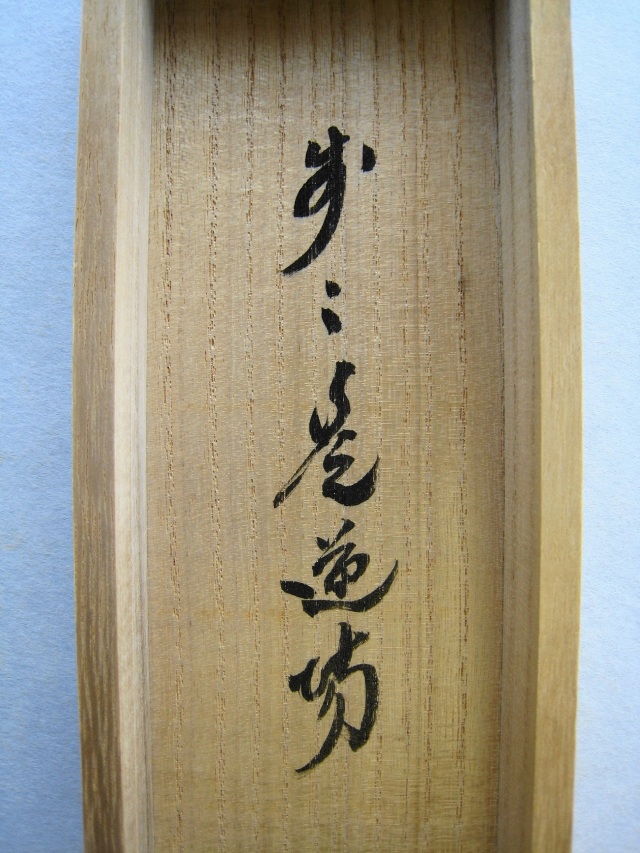 歩々是道場